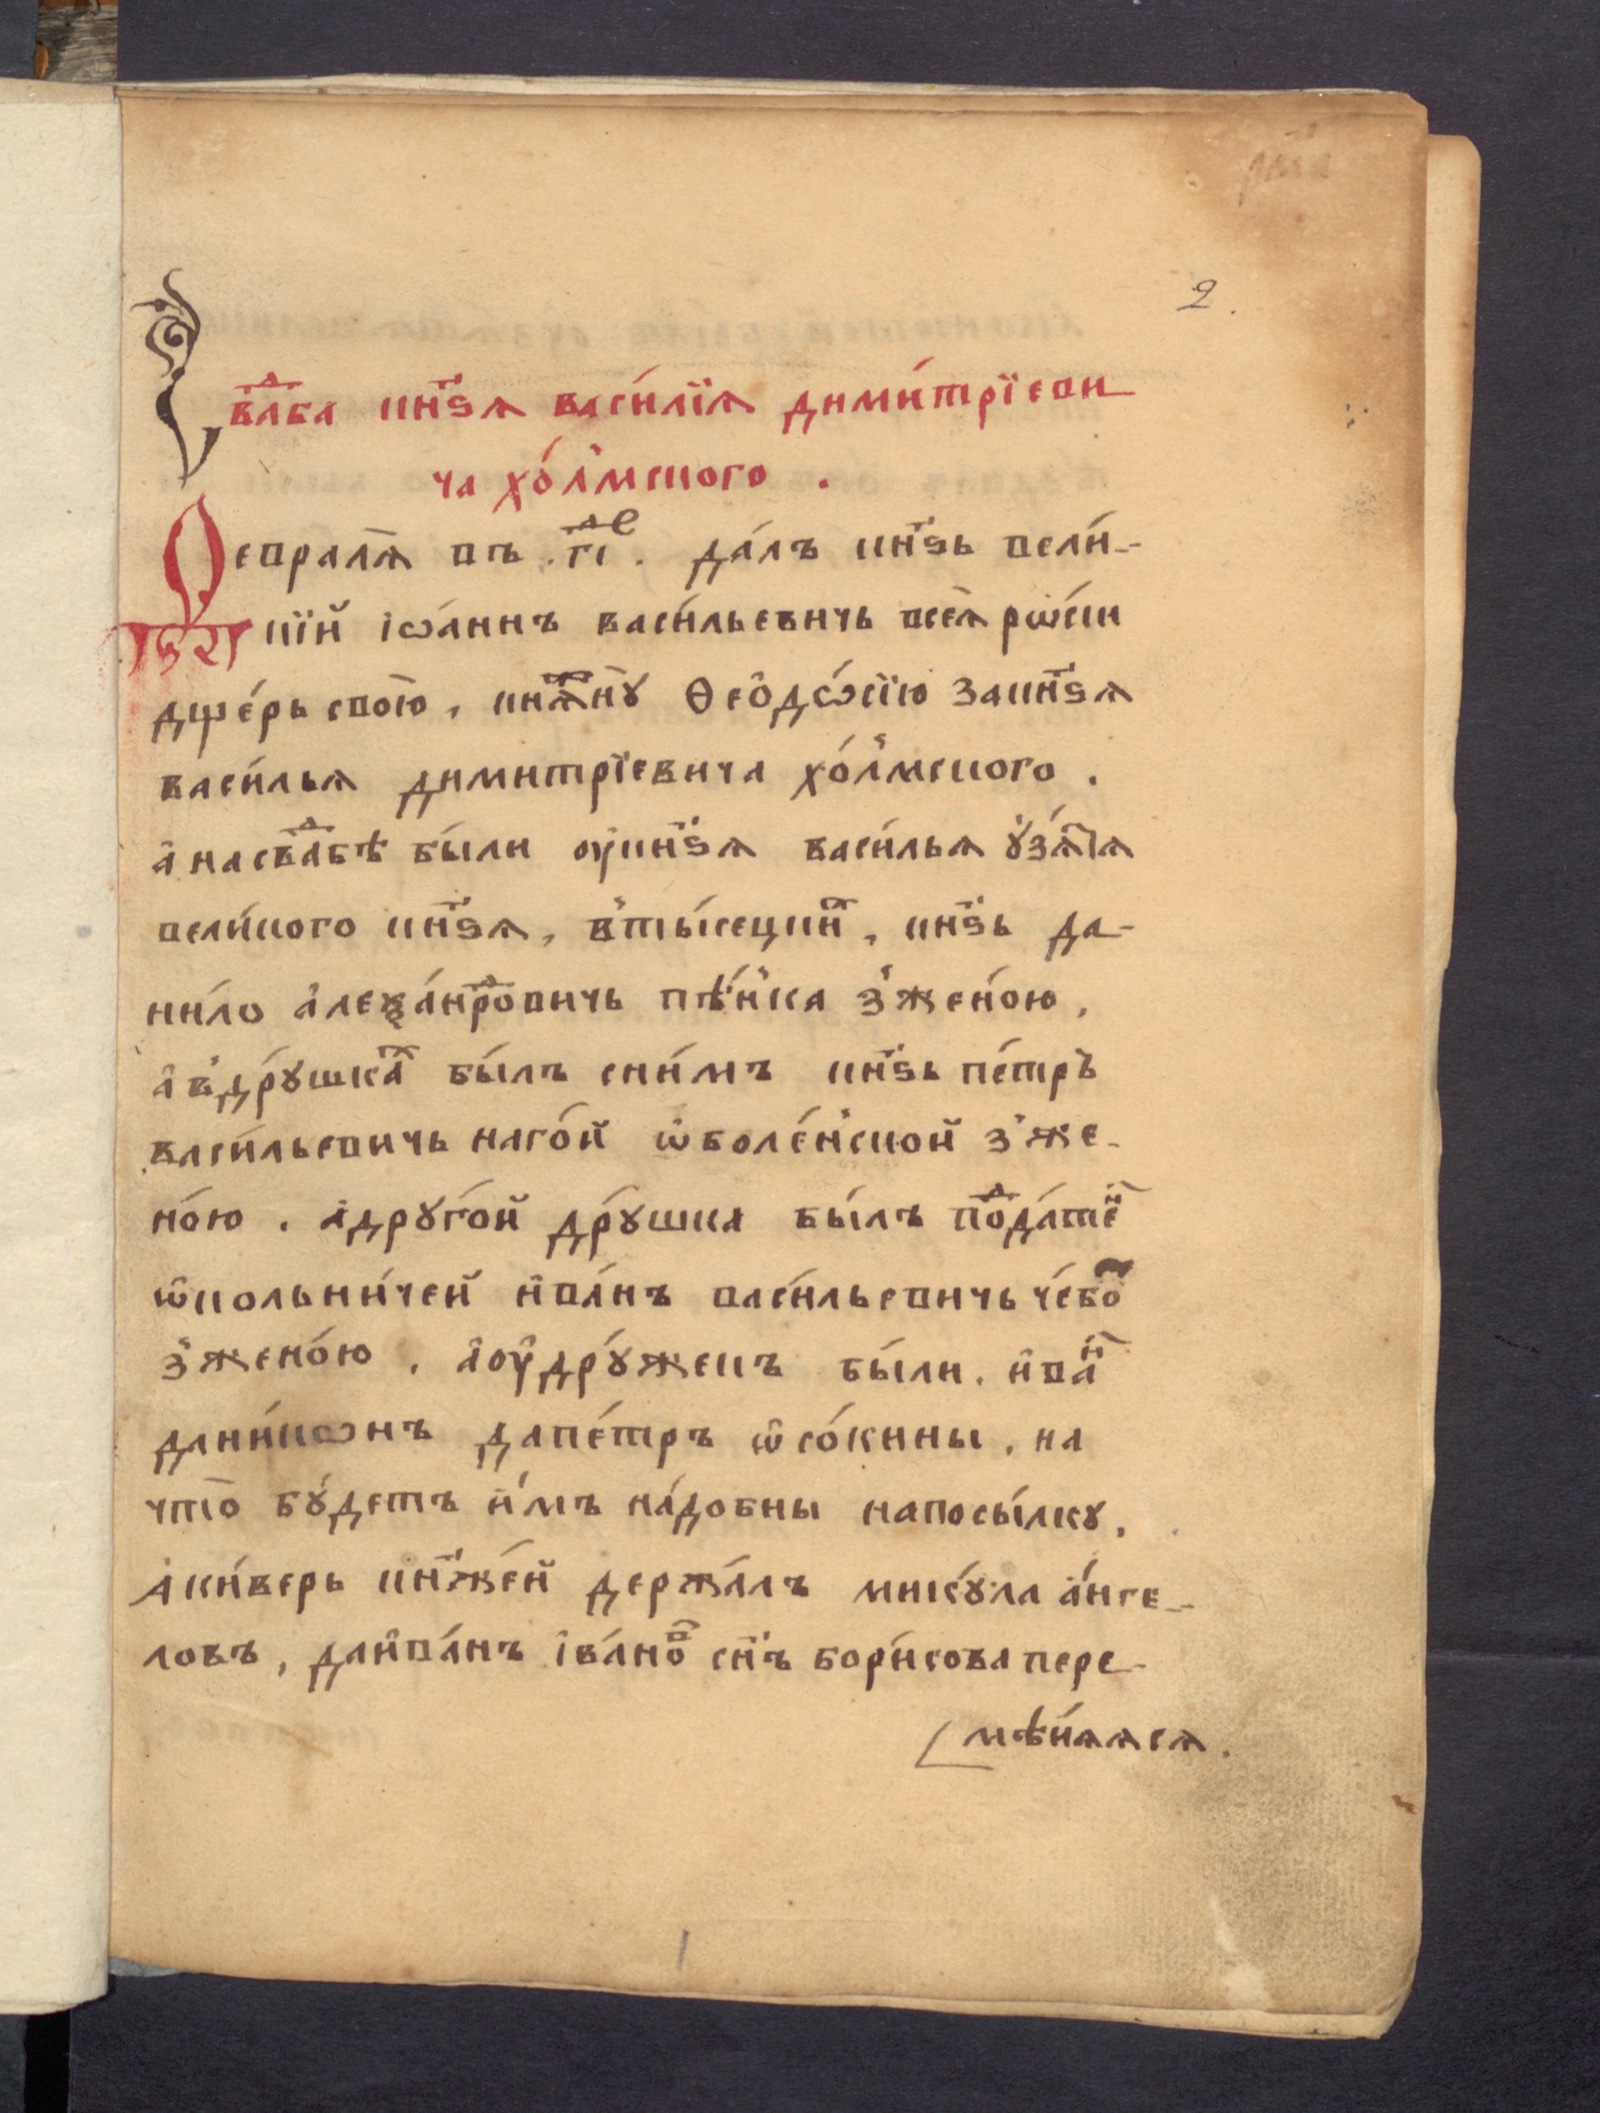 2.
Сва́дба кн҃зѧ васи́лїѧ дими́трїеви
ча хо́лмского .
Ѳевралѧ̀ въ .г҃і е. да́лъ кн҃зь вели́-
кїй іѡа́ннъ васи́льевичь всеѧ̀ рѡсі́и
дще́рь свою̀, кнѧжнꙋ̀ ѳеодо́сїю за кн҃зѧ
васи́льѧ димитрїевича хо́лмского .
а на свадбѣ бы́ли оу кн҃зѧ васи́льѧ ꙋ зѧ́тѧ
вели́кого кн҃зѧ, в ты́сецкихъ, кн҃зь да-
ни́ло алеѯа́ндровичь пѣ́нка з жено́ю,
а в дрꙋшкахъ бы́лъ с ни́мъ кн҃зь пе́тръ
васи́льевичь наго́й ѡболе́нской з же-
но́ю . а дрꙋго́й дрꙋ́шка бы́лъ под̾ да́тень
ѡкольни́чей ива́нъ васи́льевичь че́бо
з жено́ю . а оу дрꙋ́жекъ бы́ли . ива́н
дани́ловъ да пе́тръ ѡ со́кины . на
что̀ бꙋ́детъ и́мъ на́добны на посы́лкꙋ.
А ки́верь кн҃жей держа́лъ микꙋ́ла а́нге-
ловъ, да ива́нъ іва́нов сн҃ъ бори́сова пере-
мѣнѧѧсѧ.